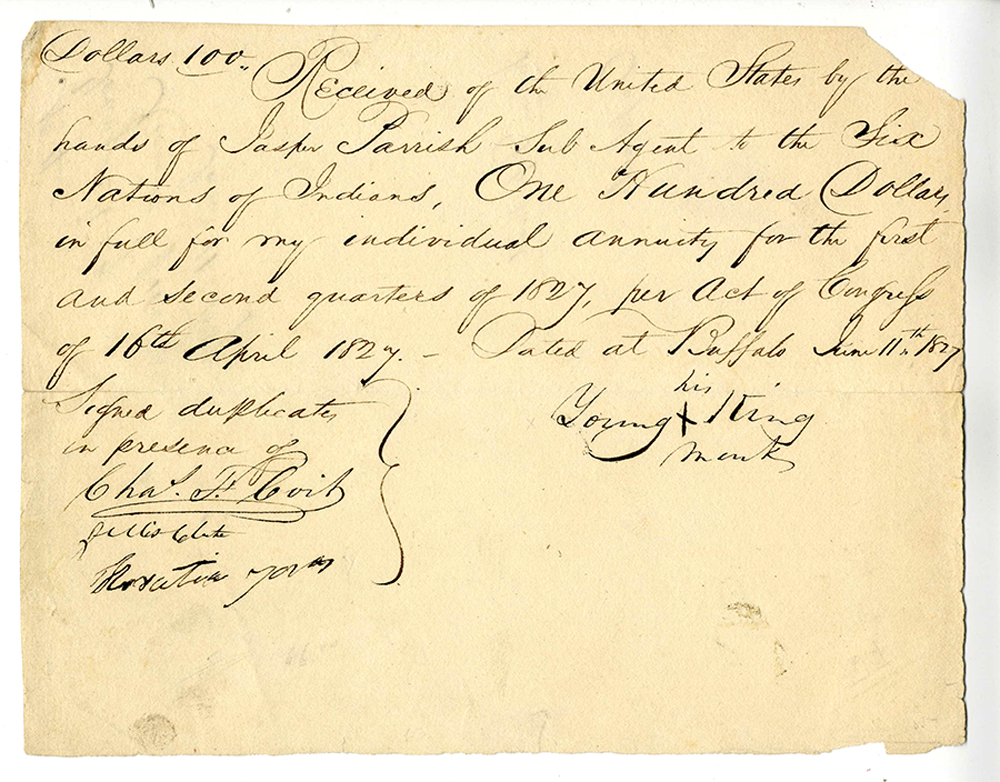 Dollars 100.
Received of the United States by the
hands of Jasper Parrish Sub Agent to the Six
Nations of Indians, One Hundred Dollars,
in full for my individual annuity for the first
and second quarters of 1827, per Act of Congress
of 16th April 1827. – Dated at Buffalo June 11th 1827
his
Young X King
mark
Signed duplicates
in presence of
Chas. F. Coit
Horatio